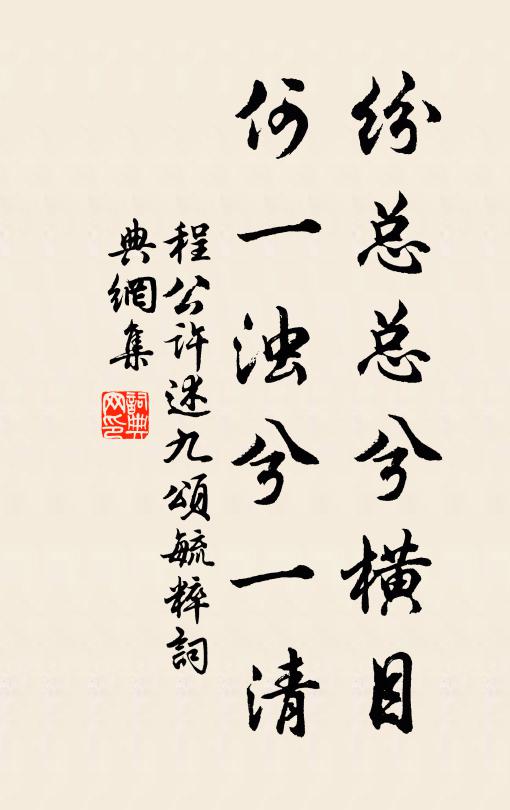 纷总总兮横目
何一浊兮一清
程公许述九頌毓粹詞
典網集
詞典网印